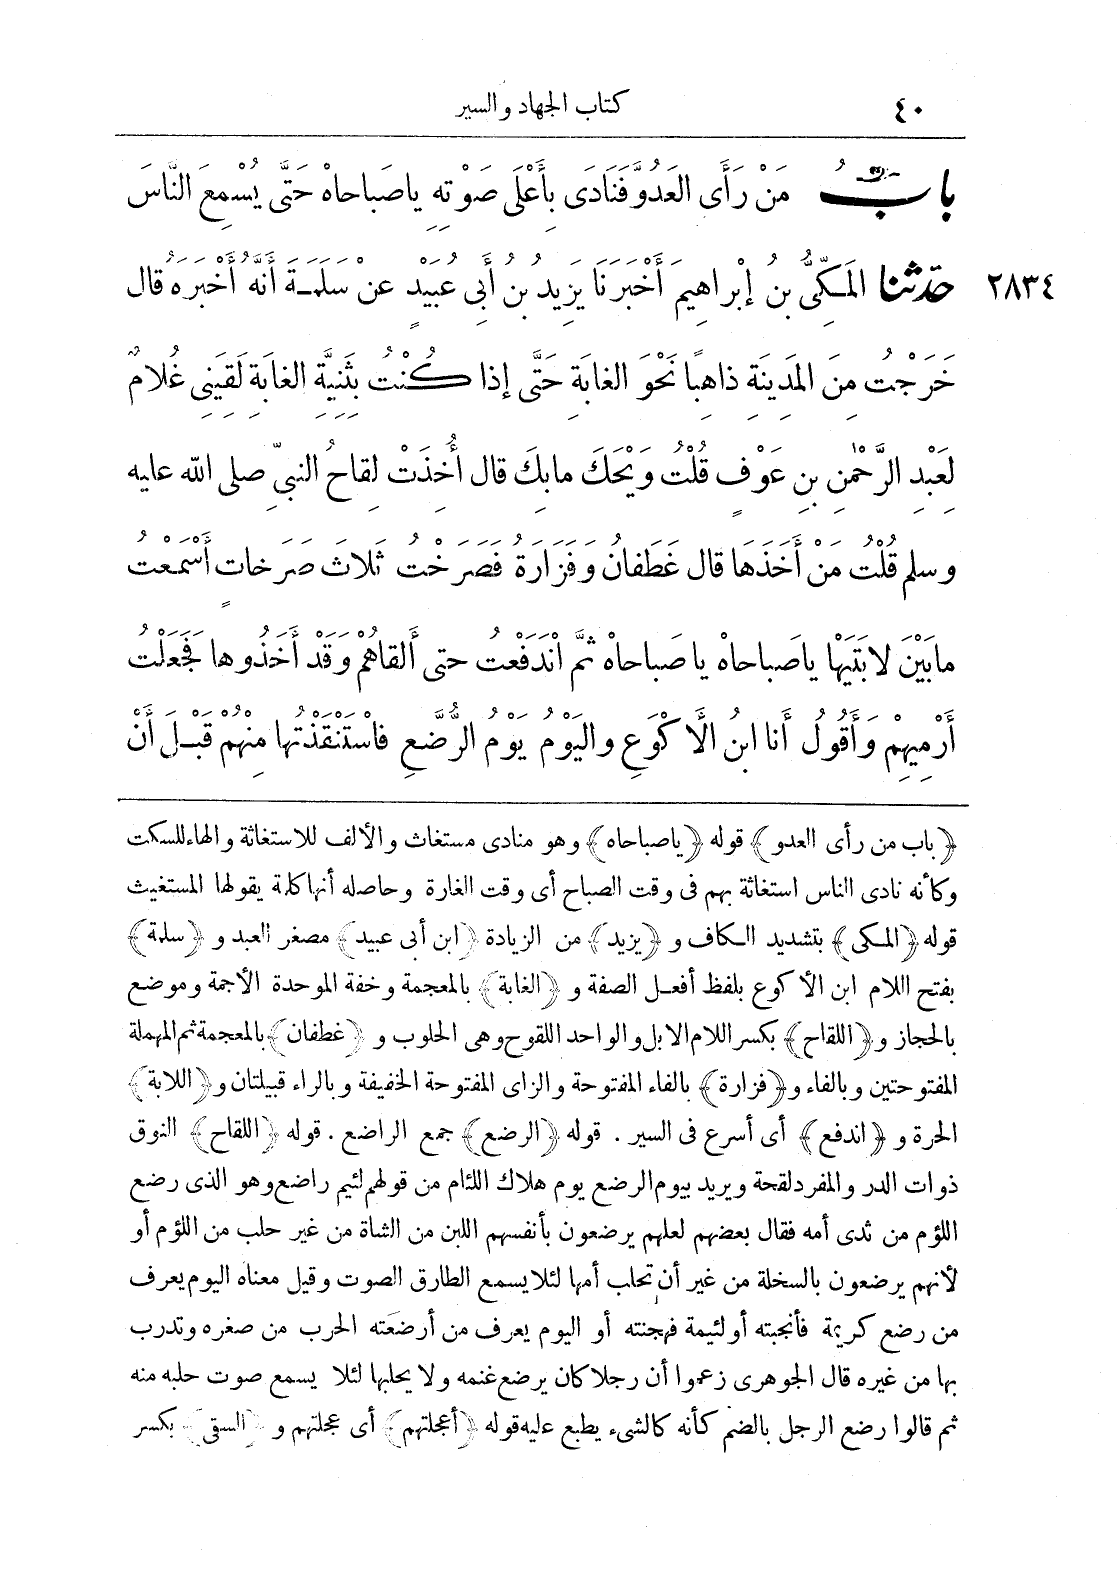 ٤٠
كتاب الجهاد والسير
بابٌ مَنْ رَأَى العَدُوَّ فَنَادَى بِأَعْلَى صَوْتِهِ ياصَباحاهْ حَتَّى يُسْمِعَ النَّاسَ
٢٨٣٤
حدثنا المَكِّىُّ بنُ إِبْراهِيمَ أَخْبَرَنا يَزِيدُ بنُ أَبِى عُبَيْدٍ عَنْ سَلَمَةَ أَنَّهُ أَخْبَرَهُ قال
خَرَجْتُ مِنَ المَدِينَةِ ذاهِبًا نَحْوَ الغابَةِ حَتَّى إذا كُنْتُ بِثَنِيَّةِ الغابَةِ لَقِيَنِى غُلامٌ
لِعَبْدِ الرَّحْمٰنِ بنِ عَوْفٍ قُلْتُ وَيْحَكَ مابِكَ قال أُخِذَتْ لِقاحُ النبىّ صلى الله عليه
وسلم قُلْتُ مَنْ أَخَذَها قال غَطَفانُ وَفَزارَةُ فَصَرَخْتُ ثَلاثَ صَرَخاتٍ أَسْمَعْتُ
مابَيْنَ لابَتَيْها ياصَباحاهْ ياصَباحاهْ ثمَّ انْدَفَعْتُ حتى أَلقاهُمْ وَقَدْ أَخَذُوها فَجَعَلْتُ
أَرْمِيهِمْ وَأَقُولُ أَنا ابنُ الأَكْوَعِ واليَوْمُ يَوْمُ الرُّضَّعِ فاسْتَنْقَذْتُها مِنْهُمْ قَبْلَ أَنْ
﴿باب من رأى العدو﴾ قوله ﴿ياصباحاه﴾ وهو منادى مستغاث والألف للاستغاثة والهاء للسكت
وكأنه نادى الناس استغاثة بهم فى وقت الصباح أى وقت الغارة وحاصله أنها كلمة يقولها المستغيث
قوله ﴿المكى﴾ بتشديد الكاف و ﴿يزيد﴾ من الزيادة ﴿ابن أبى عبيد﴾ مصغر العبد و ﴿سلمة﴾
بفتح اللام ابن الأكوع بلفظ أفعل الصفة و ﴿الغابة﴾ بالمعجمة وخفة الموحدة الأجمة وموضع
بالحجاز و ﴿اللقاح﴾ بكسر اللام الابل والواحد اللقوح وهى الحلوب و ﴿غطفان﴾ بالمعجمة ثم المهملة
المفتوحتين وبالفاء و ﴿فزارة﴾ بالفاء المفتوحة والزاى المفتوحة الخفيفة وبالراء قبيلتان و ﴿اللابة﴾
الحرة و ﴿اندفع﴾ أى أسرع فى السير . قوله ﴿الرضع﴾ جمع الراضع . قوله ﴿اللقاح﴾ النوق
ذوات الدر والمفرد لقحة ويريد بيوم الرضع يوم هلاك اللئام من قولهم لئيم راضع وهو الذى رضع
اللؤم من ثدى أمه فقال بعضهم لعلهم يرضعون بأنفسهم اللبن من الشاة من غير حلب من اللؤم أو
لأنهم يرضعون بالسخلة من غير أن تحلب أمها لئلا يسمع الطارق الصوت وقيل معناه اليوم يعرف
من رضع كريمة فأنجبته أو لئيمة فهجنته أو اليوم يعرف من أرضعته الحرب من صغره وتدرب
بها من غيره قال الجوهرى زعموا أن رجلا كان يرضع غنمه ولا يحلبها لئلا يسمع صوت حلبه منه
ثم قالوا رضع الرجل بالضم كأنه كالشىء يطبع عليه قوله ﴿أعجلتهم﴾ أى عجلتهم و ﴿السقى﴾ بكسر